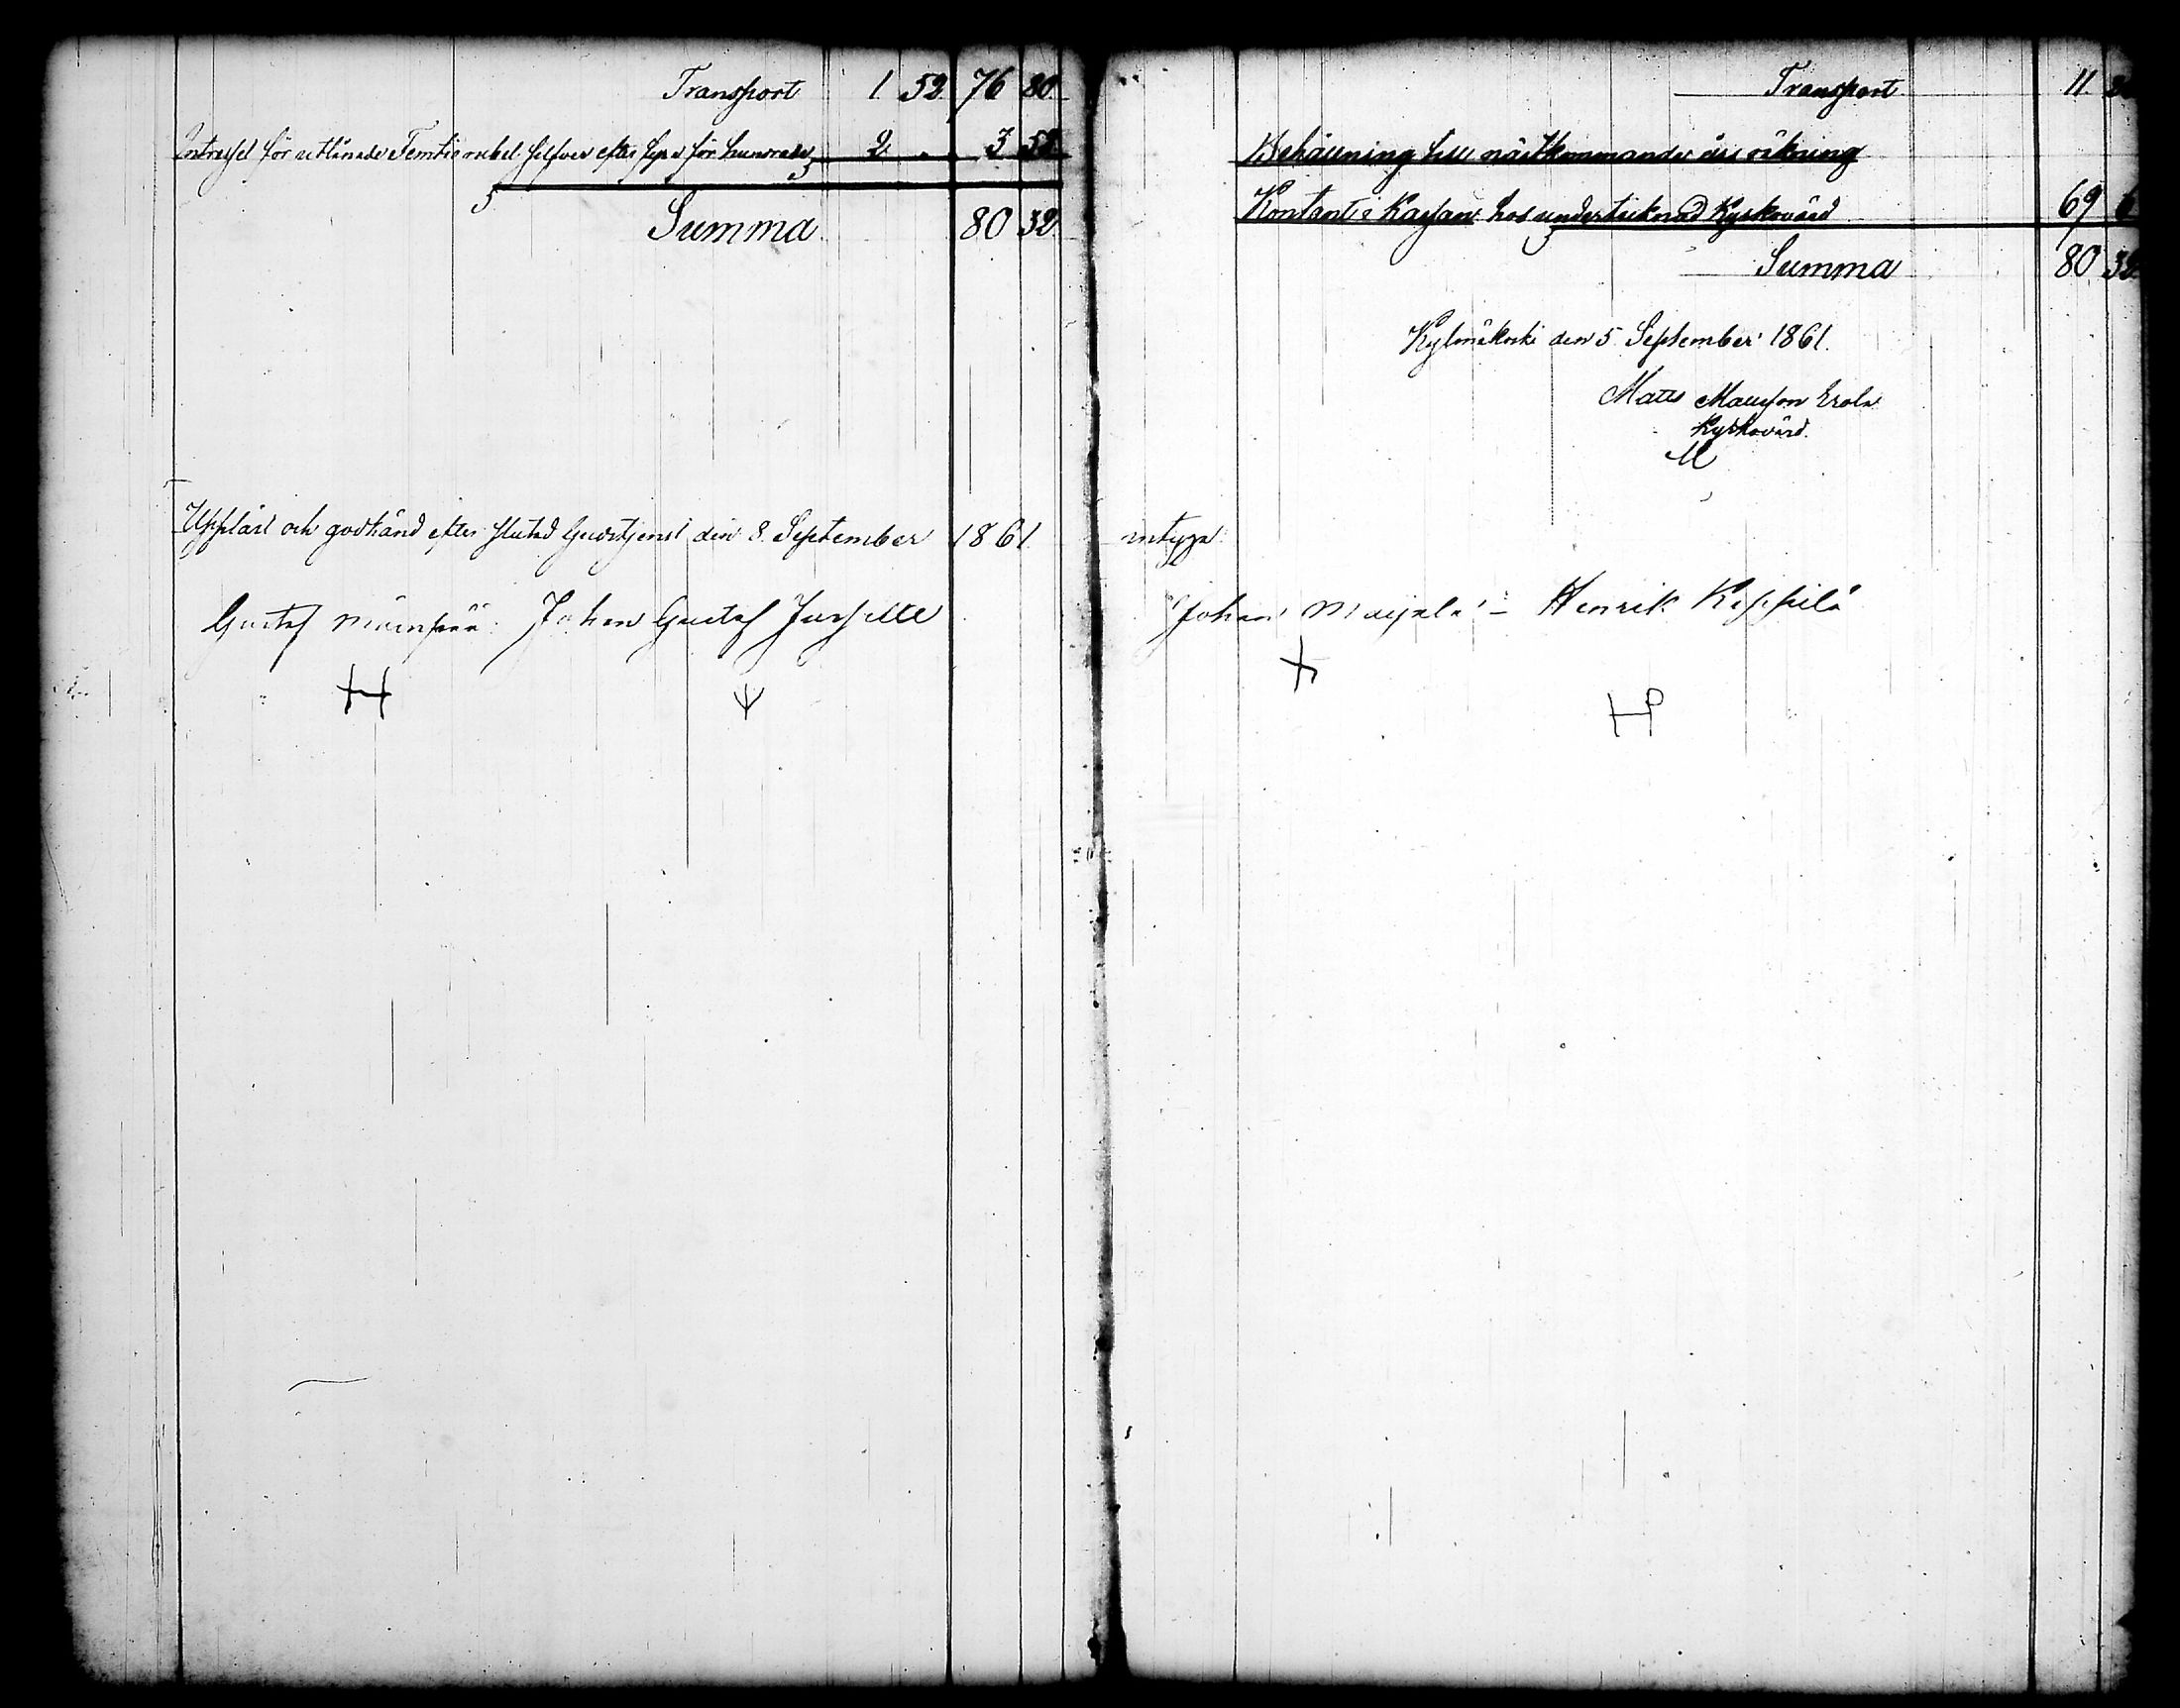 Transport 1. 52. 76 80.
Intresset för utlånade Femtio rubel silfver efter sju för hundrade 2. „ 3. 52.
Summa. 80 32.
Uppläst och godkänd efter slutad Gudstjenst den 8. September 1861. intyga.
Gustaf Johan Gustaf Jussille
Transport 11.
Behållning till nästkommande års räkning
Kontant i Kassan hos undertecknad Kyrkovärd 69 6
Summa 80 32.
Kylmäkoski den 5 September 1861.
Matts Mattsson Erola
Kyrkovärd.
M
Johan Henrik Keppilä